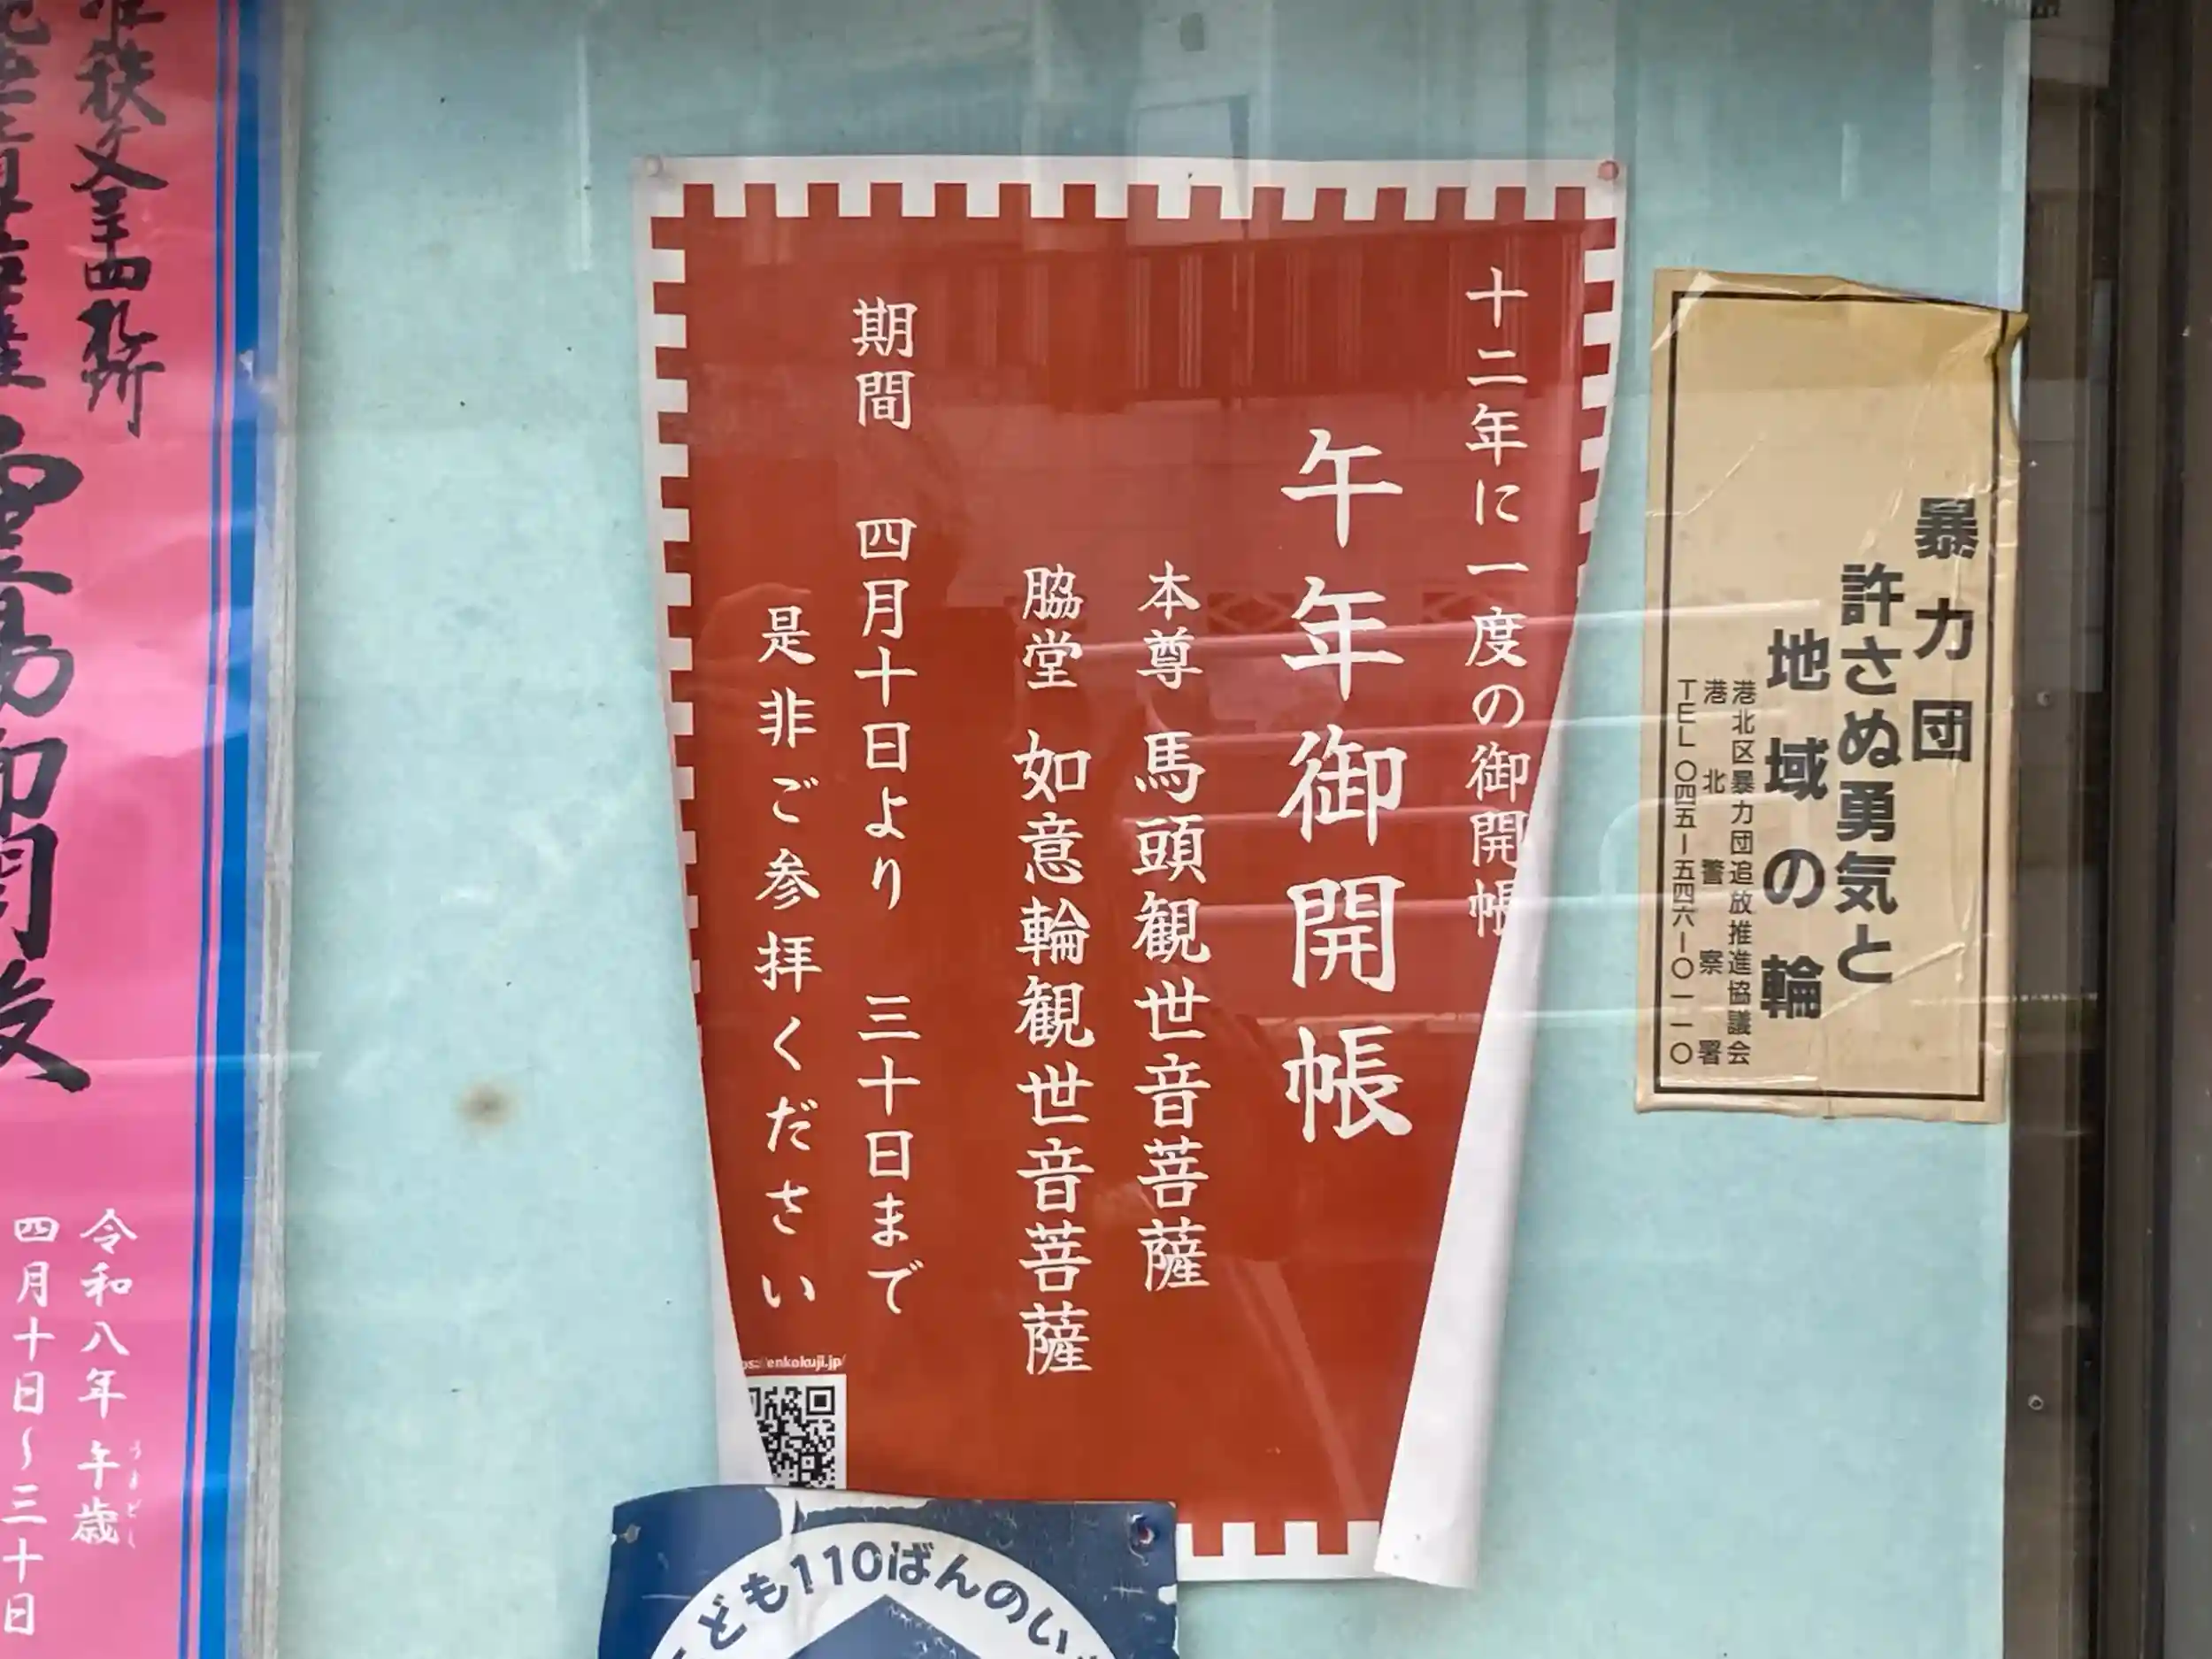 暴力団
許さぬ勇気と
地域の輪
港北区暴力団追放推進協議会
港北警察署
TEL〇四五ー五四六ー〇一一〇
十二年に一度の御開帳
午年御開帳
本尊 馬頭観世音菩薩
脇堂 如意輪観世音菩薩
期間 四月十日より 三十日まで
是非ご参拝ください
ps://enkokuji.jp/
こども110ばんのい
准秩父三十四札所
霊場御開扉
令和八年 午歳
うまどし
四月十日～三十日